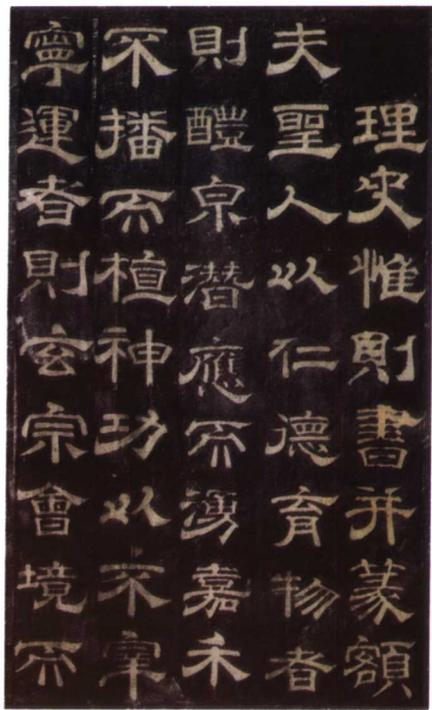 理史惟則書并篆額
夫聖人以仁德育物者
則醴泉潜應而湧嘉禾
不播而植神功以不宰
寧運者則玄宗會境而